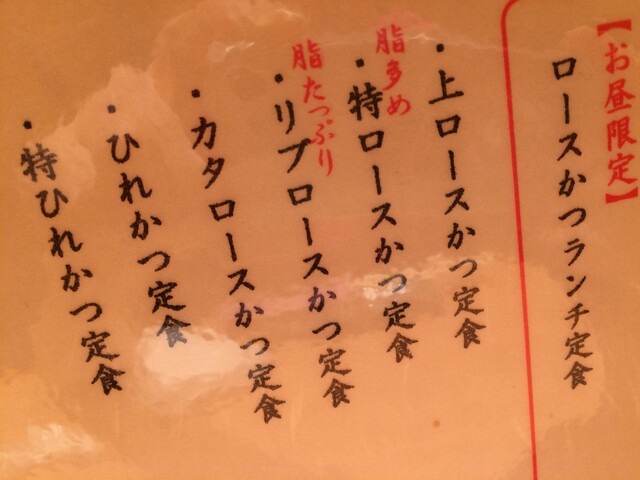 【お昼限定】
ロースかつランチ定食
・上ロースかつ定食
脂多め
・特ロースかつ定食
脂たっぷり
・リブロースかつ定食
・カタロースかつ定食
・ひれかつ定食
・特ひれかつ定食